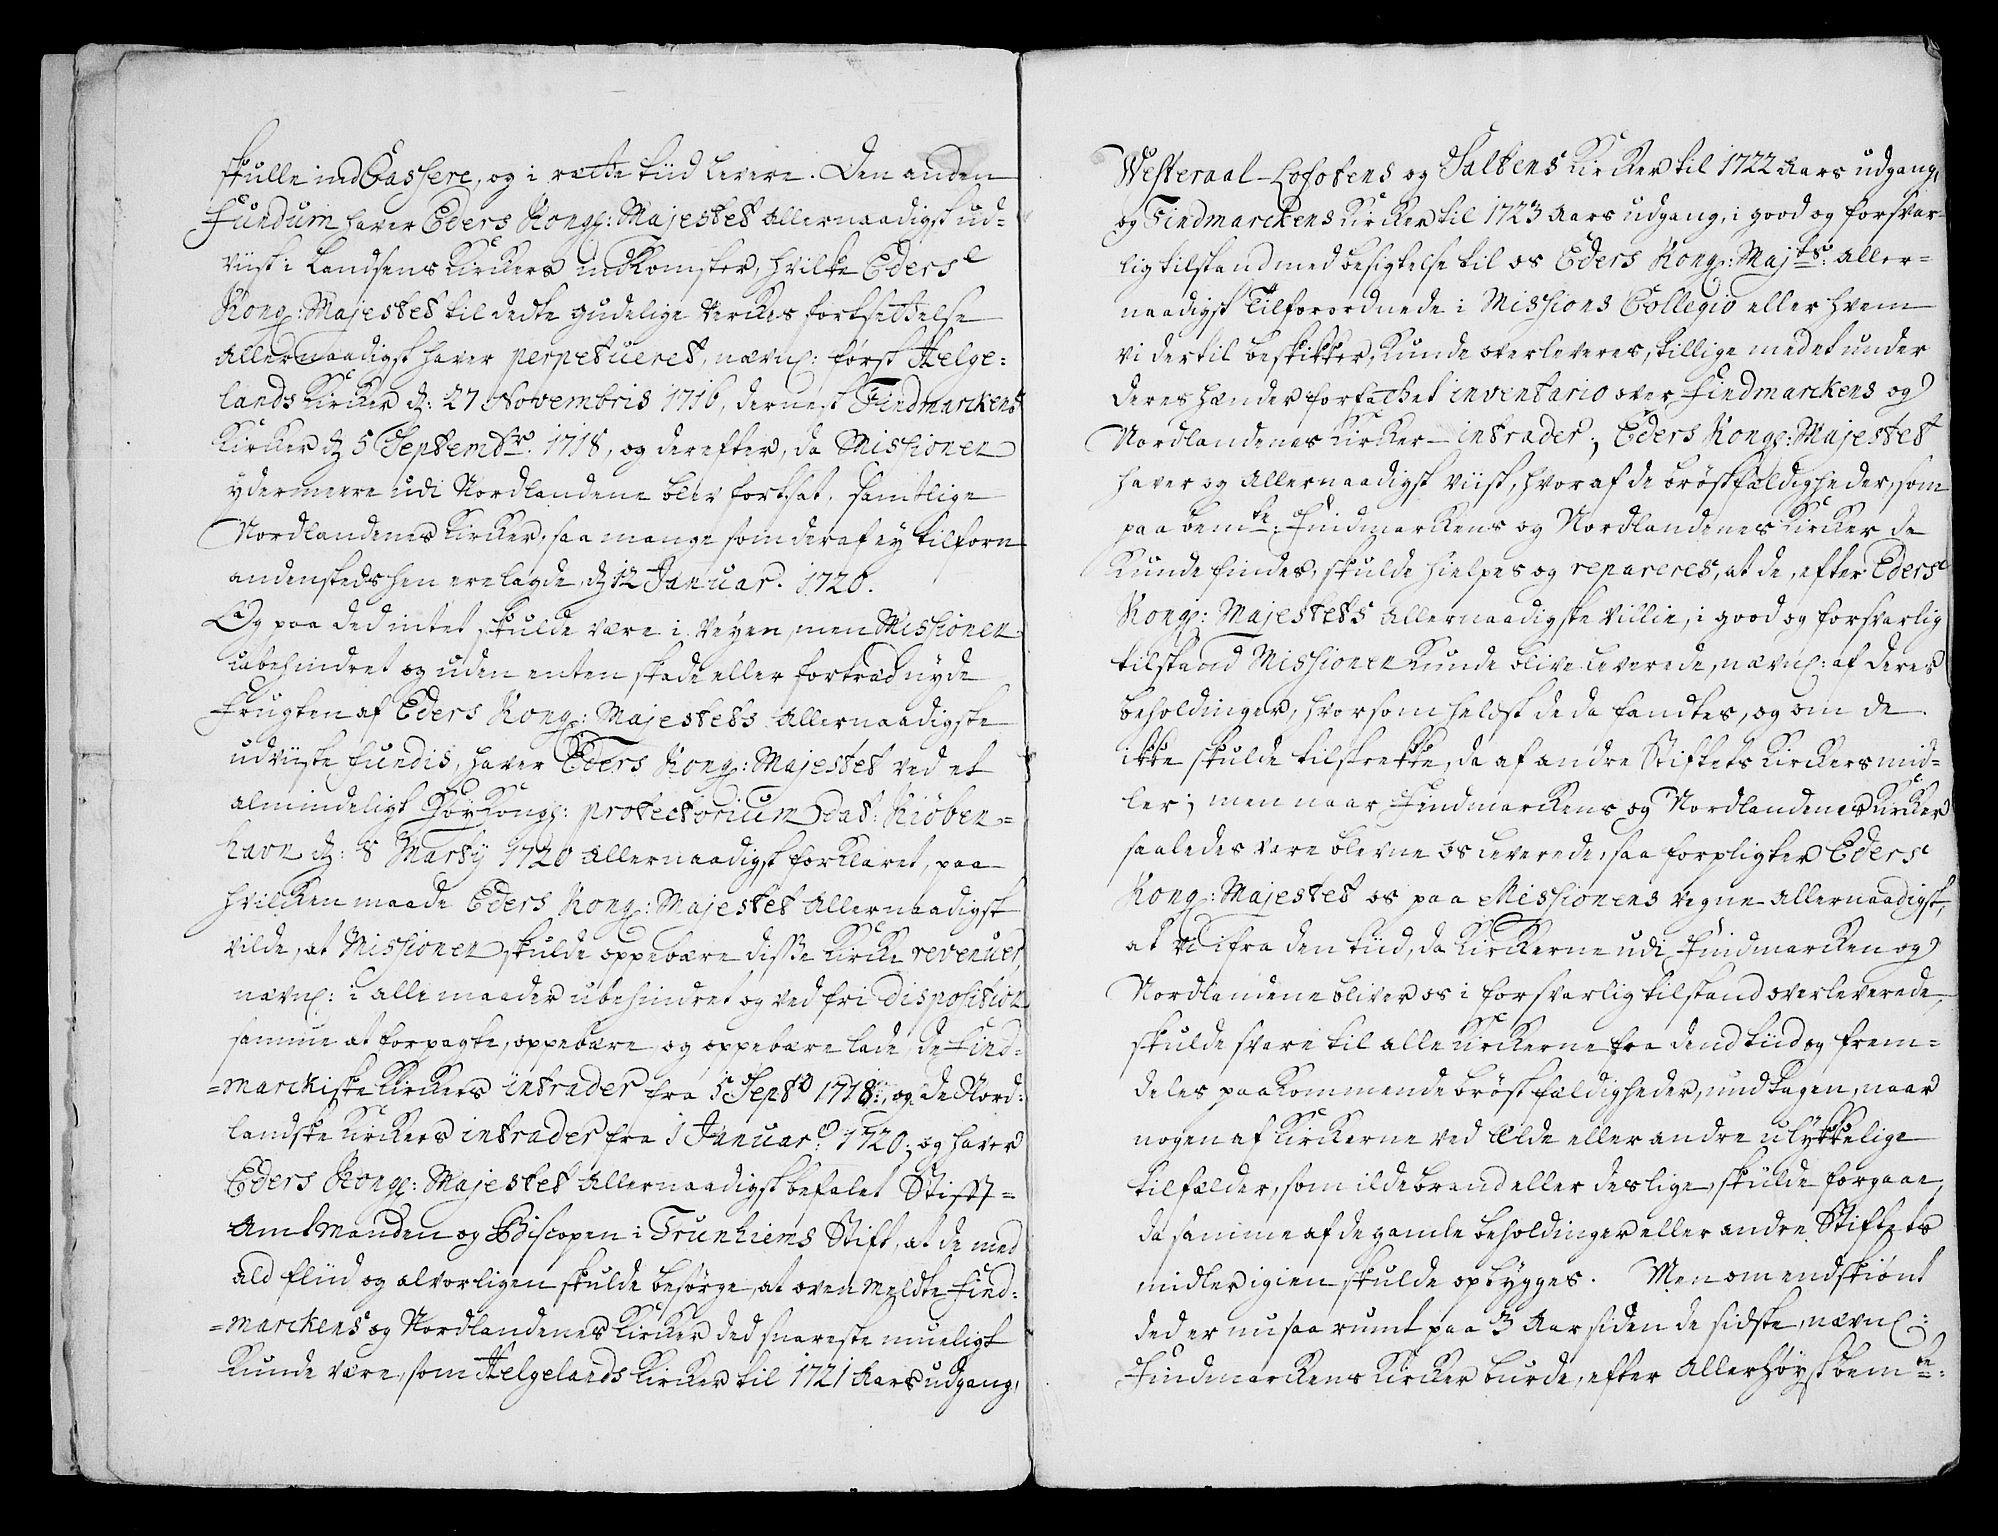 skulle ind Cassere, og i rætte tiid levere. Den anden
Fundum haver Eders Kongl: Majestet Allernaadigst ud-
viist i Landsens Kirckers indkomster, hvilke Eders
Kongl: Majestet til dette gudelige Verckes fortsettelse
Allernaadigst haver perpetueret, nævnl: først Helge-
lands Kircker d: 27 Novembris 1716, dernest Findmarckens
Kircker d 5 Septembr. 1718, og derefter, da Missionen
ydermeere udi Nordlandene blev fortsat, samtlige
Nordlandenes Kircker, saa mange som deraf ey tilforn
andensteds hen ere lagde, d 12 Januar. 1720.
Og paa ded intet skulde være i veyen, men Missionen
uabehindret og uden enten skade eller fortræd nyde
Frugten af Eders Kongl: Majestets Allernaadigste
udviiste fundis, haver Eders Kongl: Majestet ved et
almindeligt Høy Kongl: protectorium Dat: Kiøben-
havn d: 8 Martij 1720 Allernaadigst forklaret, paa
hvilcken maade Eders Kongl: Majestet Allernaadigst
vilde, at Missionen skulde oppebære disse Kircke revenuer,
nævnl: i alle maader ubehindret og ved fri Disposition
samme at forpagte, oppebære og oppebære lade, de Find-
-marckiske Kirckers intrader fra 5 Septb 1718, og de Nord-
landske Kirckers intrader fra 1 Januar. 1720; og haver
Eders Kongl: Majestet Allernaadigst befalet Stifft-
Amtmanden og Biscopen i Trunhiems Stift, at de med
ald fliid og alvorligen skulde besørge, at oven meldte Find-
-marckens og Nordlandenes Kircker ded snareste mueligt
kunde være, som Helgelands Kircker til 1721 Aars udgang,
Westeraal-Lofotens og Saltens Kircker til 1722 Aars udgang,
og Findmarckens Kircker til 1723 Aars udgang, i good og forsvar-
lig tilstand med besigtelse til os Eders Kongl: Majts: Aller-
naadigst Tilforordnede i Missions Collegio eller hvem
vi dertil beskikker, kunde overleveres, tillige med et under
deres hænder forfattet inventario over Findmarckens og
Nordlandenes Kircker-intrader; Eders Kongl: Majestet
haver og Allernaadigst viist, hvor af de brøstfældigheder, som
paa bemte: Findmarckens og Nordlandenes Kircker da
kunde findes, skulde hielpes og repareres, at de, efter Eders
Kongl: Majestets Allernaadigste villie, i good og forsvarlig
tilstand Missionen kunde blive leverede, nævnl: af deres
beholdinger, hvorsomhelst de da fandtes, og om de
ikke skulde tilstrekke, da af andre Stiftets Kirckers mid-
ler; men naar Findmarckens og Nordlandenes Kircker
saaledes vare blevne os leverede, saa forpligter Eders
Kongl: Majestet os paa Missionens vegne Allernaadigst,
at vi ifra den tiid, da Kirckerne udi Findmarcken og
Nordlandene bliver os i forsvarlig tilstand overleverede,
skulde svare til alle Kirckerne fra dend tiid og frem-
deles paakommende brøstfældigheder, undtagen, naar
nogen af Kirckerne ved Ælde eller andre ulykkelige
tilfælder, som ildebrand eller deslige, skulde forgaae,
da samme af de gamle beholdinger eller andre Stiftets
midler igien skulde opbygges. Men omendskiønt
ded er nu saa rumt paa 3 Aar siden de sidste, nævnl:
Findmarckens Kircker burde, efter Allerhøyst bemte: